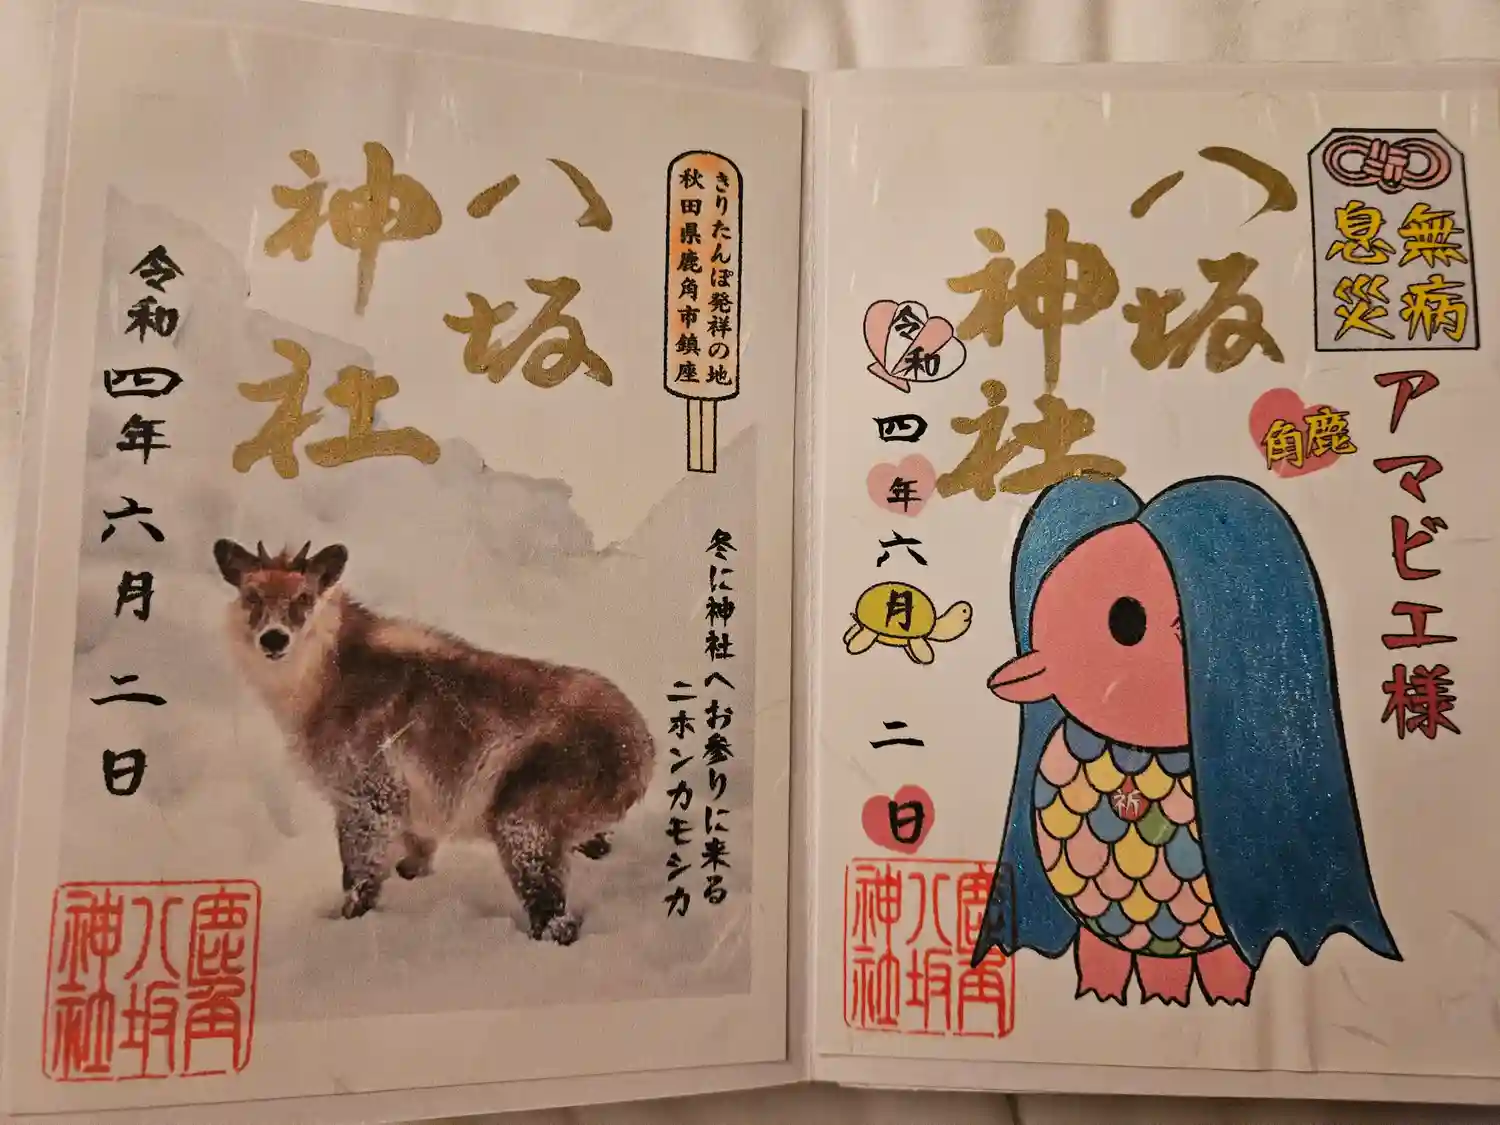 きりたんぽ発祥の地
秋田県鹿角市鎮座
八坂
神社
令和四年六月二日
冬に神社へお参りに来る
ニホンカモシカ
鹿角
八坂
神社
無病
息災
アマビエ様
鹿角
八坂
神社
令和四年六月二日
祈
鹿角
八坂
神社